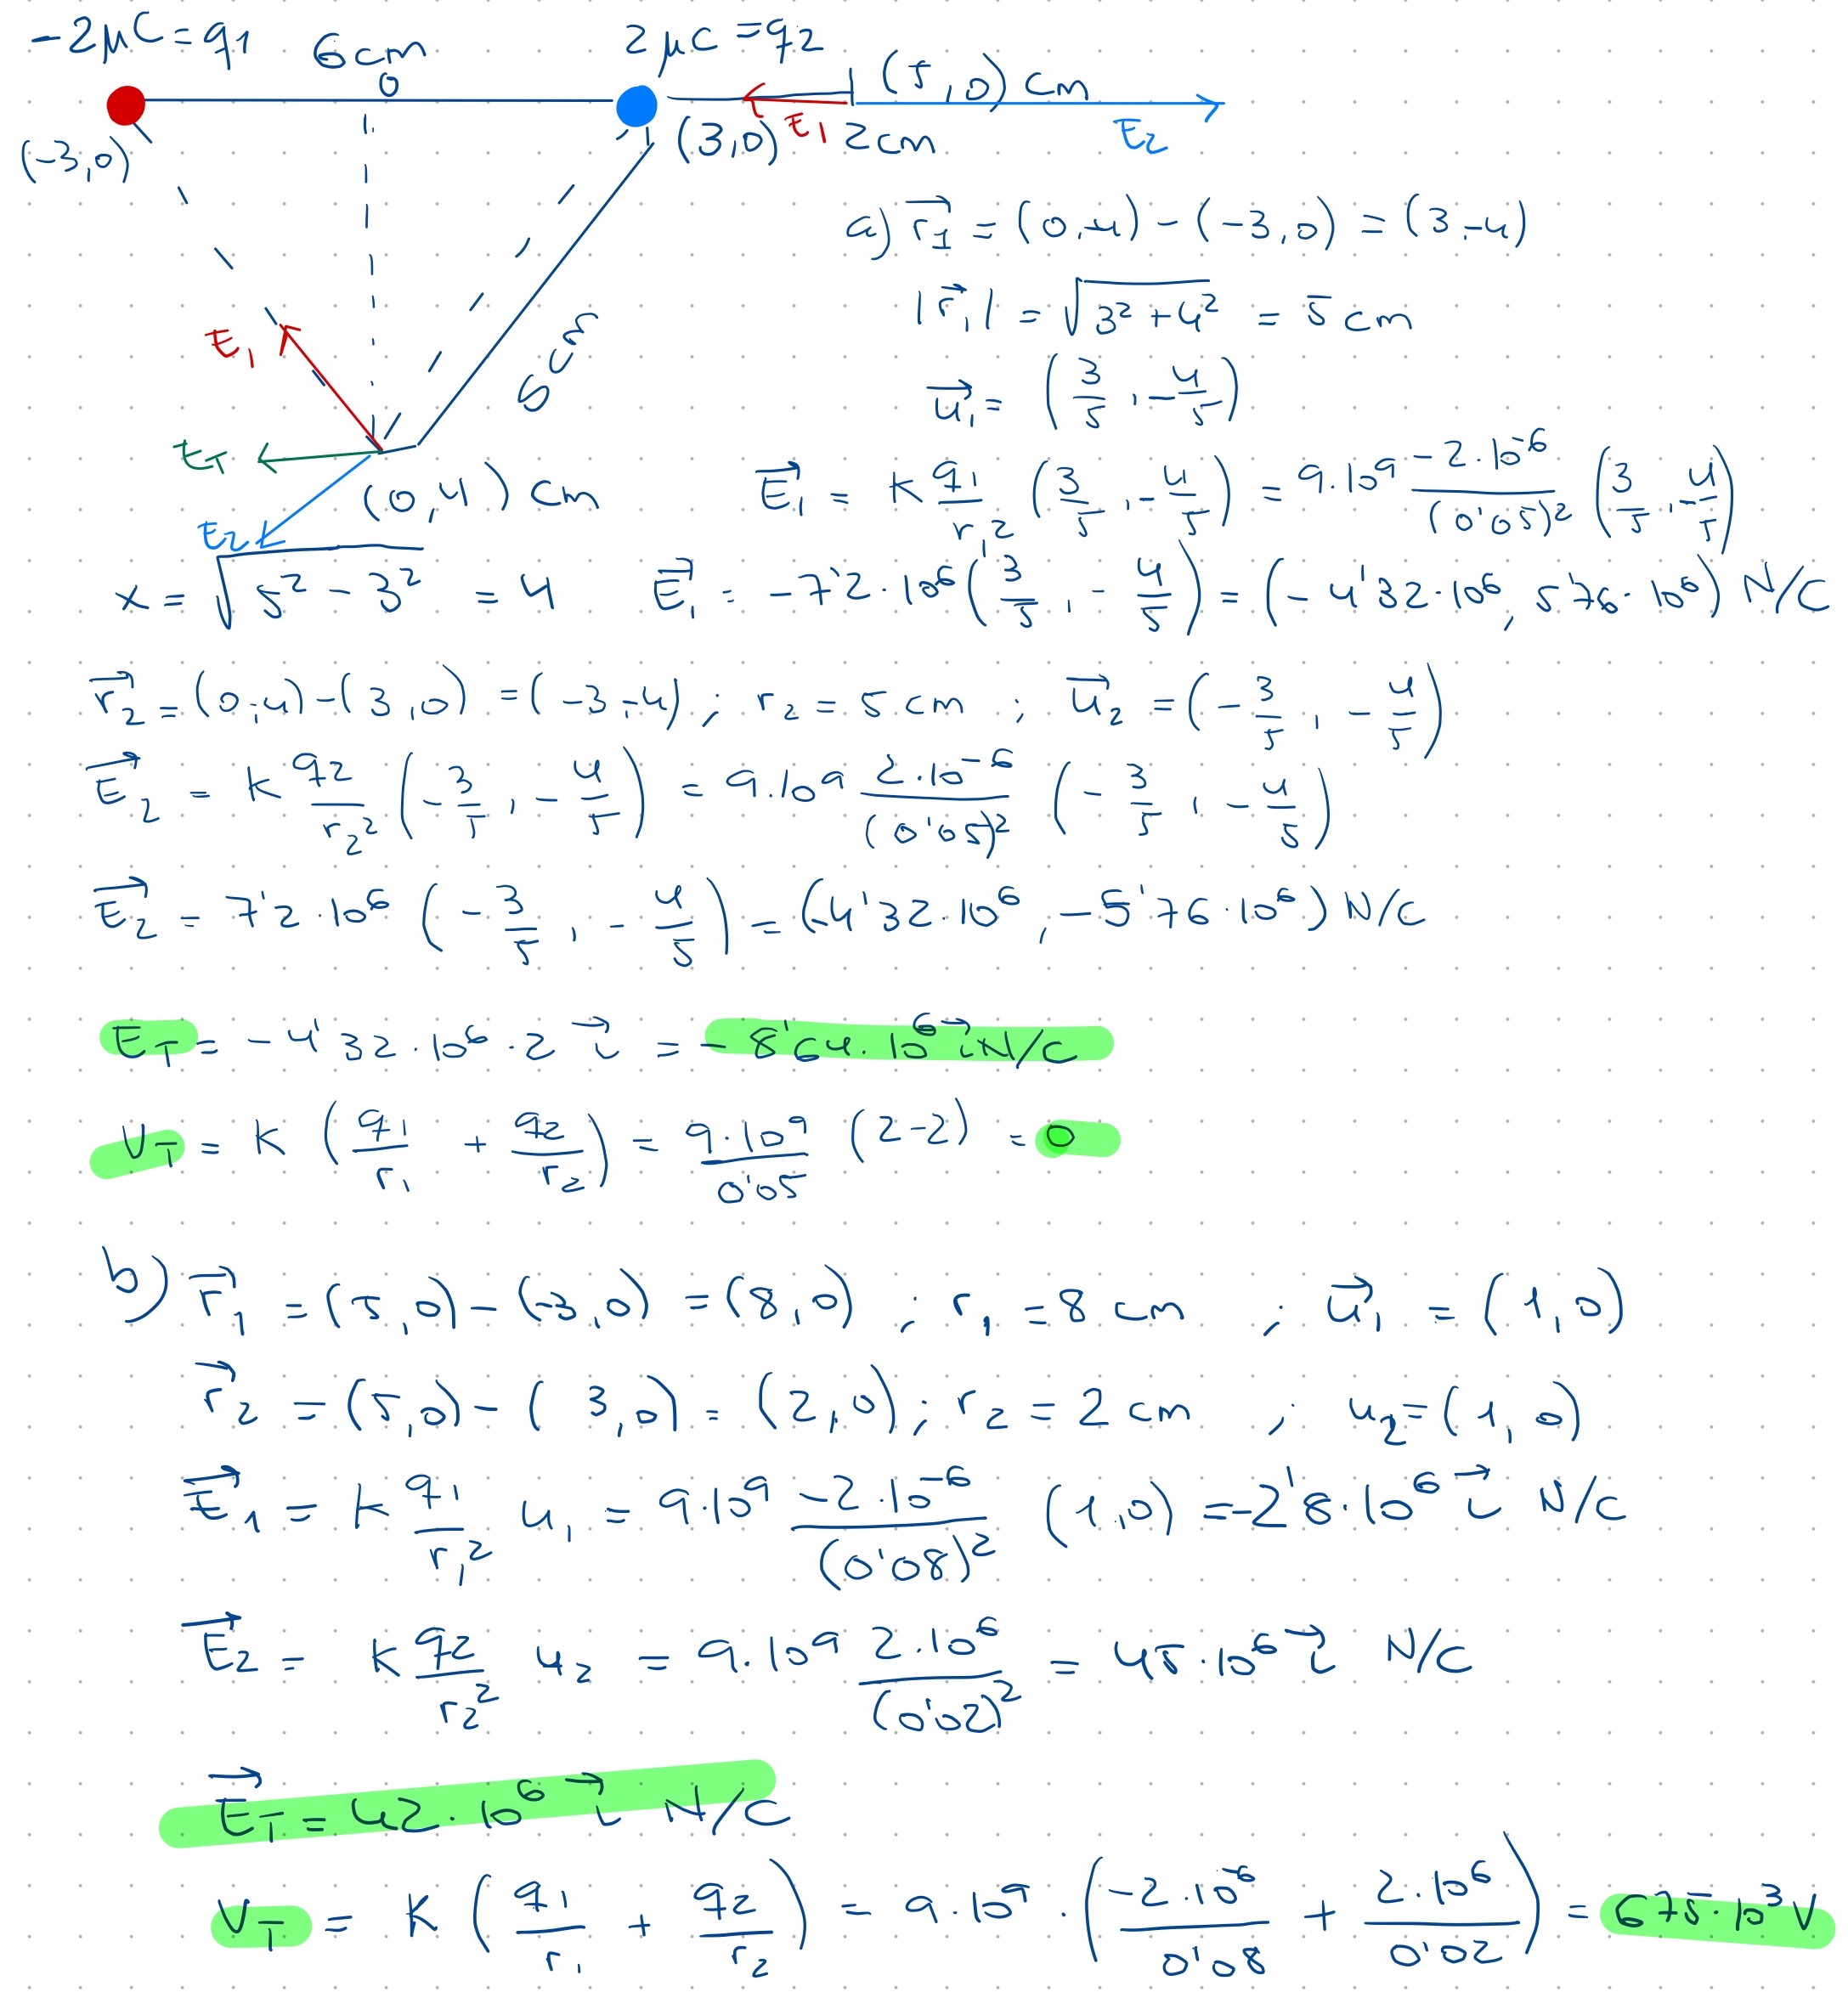 -2μC=q1 6cm 2μC=q2
0 (5,0) cm
(-3,0) (3,0) E1 2cm E2
a) r1 = (0,-4) - (-3,0) = (3,-4)
|r1| = √(3²+4²) = 5 cm
E1 5cm
u1 = (3/5, -4/5)
ET
(0,4) cm E1 = K q1/r1² (3/5, -4/5) = 9·10⁹ -2·10⁻⁶/(0'05)² (3/5, -4/5)
E2
x = √(5²-3²) = 4 E1 = -7'2·10⁶ (3/5, -4/5) = (-4'32·10⁶, 5'76·10⁶) N/C
r2 = (0,-4)-(3,0) = (-3,-4) ; r2 = 5 cm ; u2 = (-3/5, -4/5)
E2 = K q2/r2² (-3/5, -4/5) = 9·10⁹ 2·10⁻⁶/(0'05)² (-3/5, -4/5)
E2 = 7'2·10⁶ (-3/5, -4/5) = (-4'32·10⁶, -5'76·10⁶) N/C
ET = -4'32·10⁶·2 i = -8'64·10⁶ i N/C
VT = K (q1/r1 + q2/r2) = 9·10⁹/0'05 (2-2) = 0
b) r1 = (5,0) - (-3,0) = (8,0) ; r1 = 8 cm ; u1 = (1,0)
r2 = (5,0) - (3,0) = (2,0) ; r2 = 2 cm ; u2 = (1,0)
E1 = K q1/r1² u1 = 9·10⁹ -2·10⁻⁶/(0'08)² (1,0) = -2'8·10⁶ i N/C
E2 = K q2/r2² u2 = 9·10⁹ 2·10⁶/(0'02)² = 45·10⁶ i N/C
ET = 42·10⁶ i N/C
VT = K (q1/r1 + q2/r2) = 9·10⁹ · (-2·10⁻⁶/0'08 + 2·10⁶/0'02) = 675·10³ V